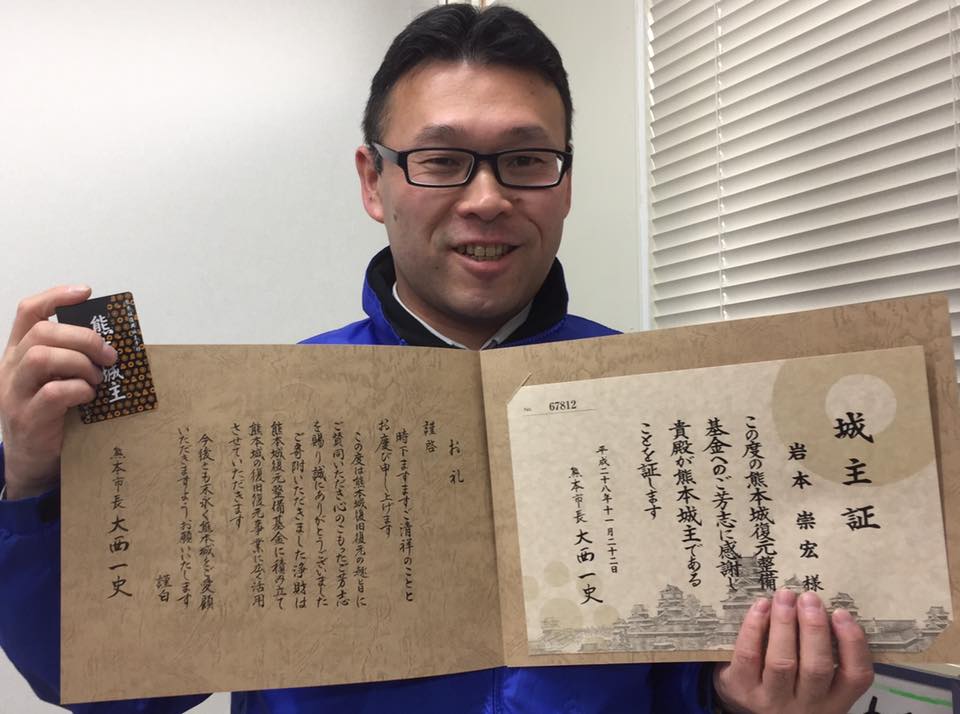 城主証
岩本 崇宏 様
この度の熊本城復元整備
基金へのご芳志に感謝し
貴殿が熊本城主である
ことを証します
平成二十八年十一月二十二日
熊本市長 大西一史
No. 67812
お礼
謹啓
時下ますますご清祥のことと
お慶び申し上げます
この度は熊本城復旧復元の趣旨に
ご賛同いただき心のこもったご芳志
を賜り誠にありがとうございました
ご寄附いただきました浄財は
熊本城復元整備基金に積み立て
熊本城の復旧復元事業に広く活用
させていただきます
今後とも末永く熊本城をご愛顧
いただきますようお願いいたします
謹白
熊本市長 大西一史
熊 城主